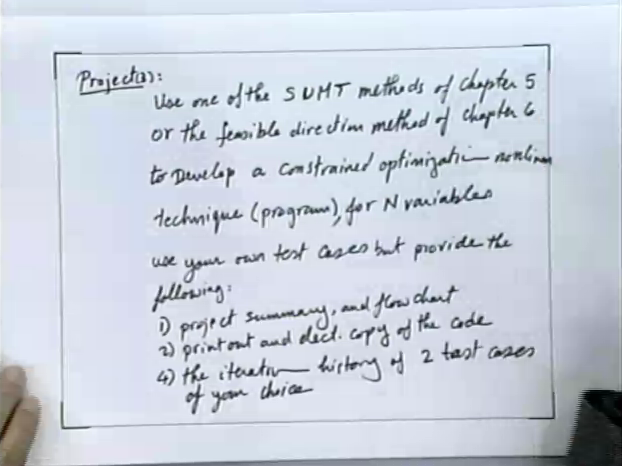 Project(3):
Use one of the SUMT methods of chapter 5
or the feasible direction method of chapter 6
to Develop a constrained optimization nonlinear
technique (program), for N variables
use your own test cases but provide the
following:
1) project summary, and flow chart
2) print out and elect. copy of the code
4) the iteration history of 2 test cases
of your choice